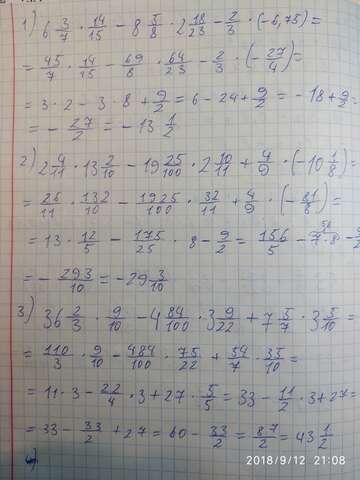 1) 6 3/7 · 14/15 − 8 5/8 · 2 18/23 − 2/3 · (−6,75) =
= 45/7 · 14/15 − 69/8 · 64/23 − 2/3 · (−27/4) =
= 3 · 2 − 3 · 8 + 9/2 = 6 − 24 + 9/2 = −18 + 9/2 =
= − 27/2 = −13 1/2
2) 2 4/11 · 13 2/10 − 19 25/100 · 2 10/11 + 4/9 · (−10 1/8) =
= 26/11 · 132/10 − 1925/100 · 32/11 + 4/9 · (−81/8) =
= 13 · 12/5 − 175/25 · 8 − 9/2 = 156/5 − 7 · 8 −
= − 293/10 = −29 3/10
3) 36 2/3 · 9/10 − 4 84/100 · 3 9/22 + 7 5/7 · 3 5/10 =
= 110/3 · 9/10 − 484/100 · 75/22 + 54/7 · 35/10 =
= 11 · 3 − 22/4 · 3 + 27 · 5/5 = 33 − 11/2 · 3 + 27 =
= 33 − 33/2 + 27 = 60 − 33/2 = 87/2 = 43 1/2
2018/9/12 21:08